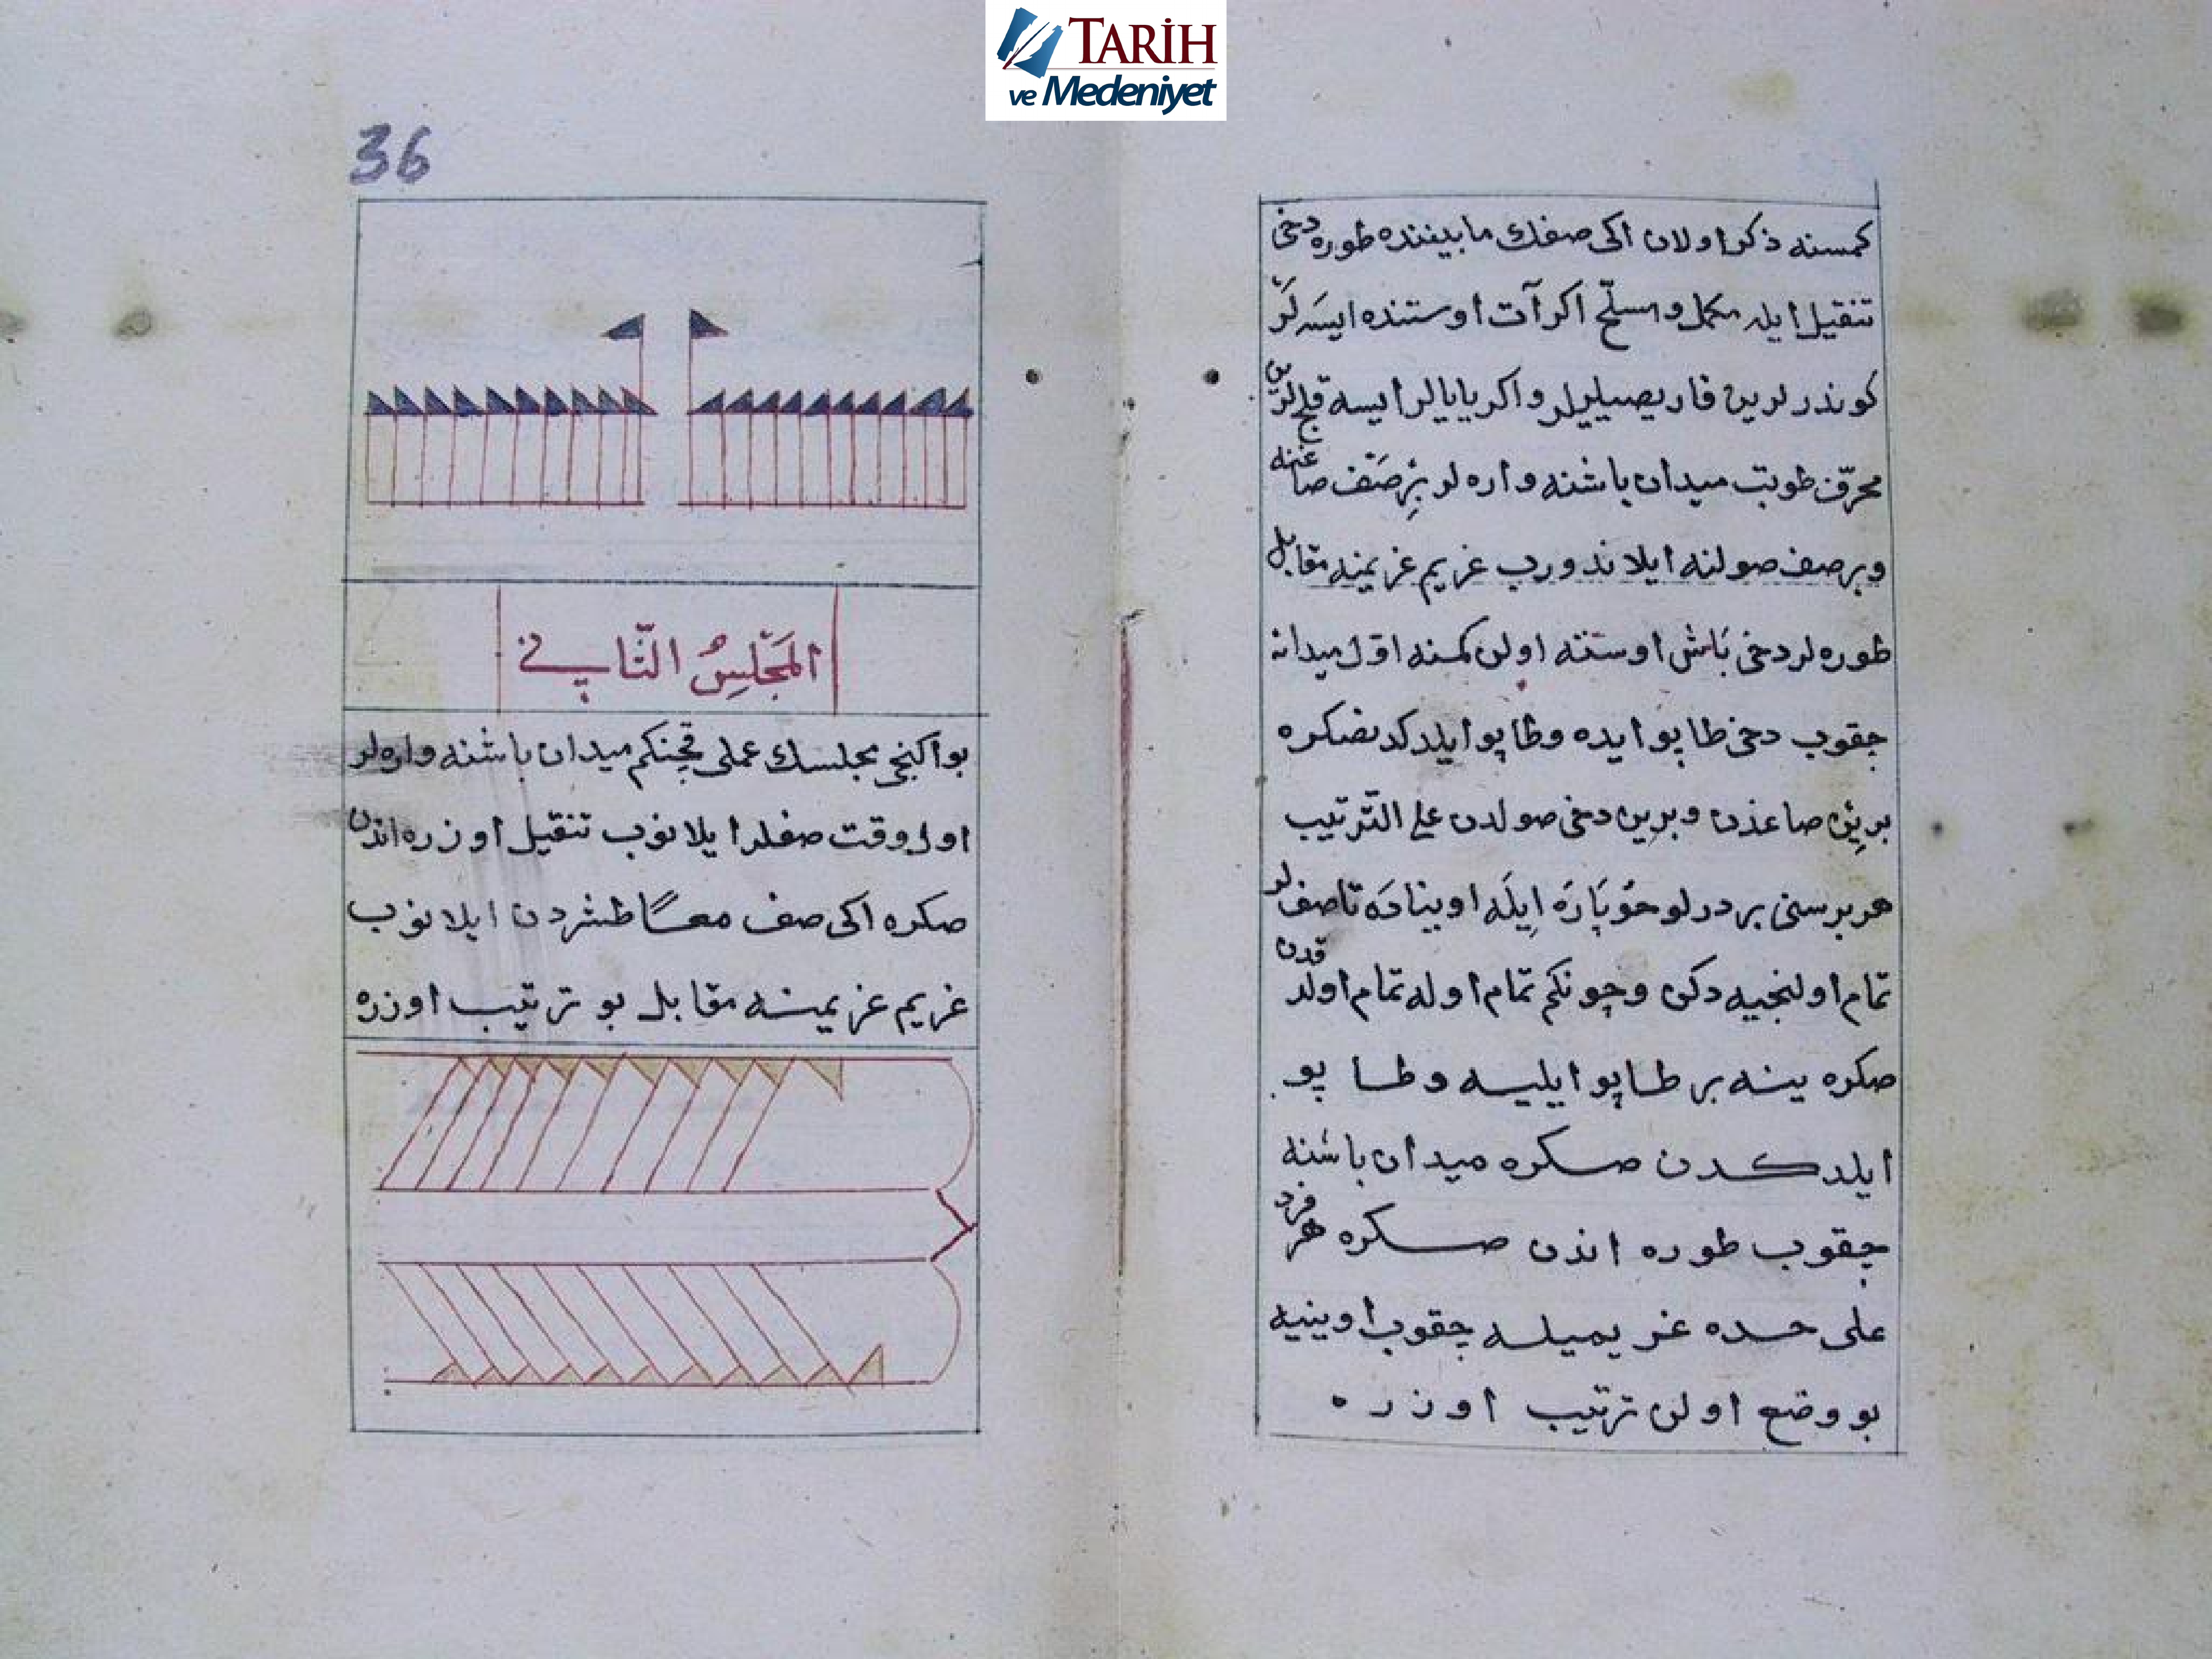 TARİH
ve Medeniyet
36
كمسنه ذكر اولان اكی صفك مابیننده طوره دخی
تنقیل ایله مكمل و مسلّح اكر آت اوستنده ایسه لر
كوندرلرین قاریصیلیلر واكر یایالر ایسه قلجلرین
محرّف طوتب میدان باشنه واره لر بر صف صاغنه
وبر صف صولنه ایلاندورب غریم غریمنه مقابل
طوره لر دخی باش اوستنه اولن كمسنه اوّل میدانه
چقوب دخی طاپو ایده وطاپو ایلدكدنصكره
بریّن صاغدن وبرین دخی صولدن علی التّرتیب
هر برسنی بر درلو حوپاره ایله اوینادَه تا صفلر
تمام اولنجیه دكن وچونكم تمام اوله تمام اولدقدن
صكره ینه بر طاپو ایلیه وطاپو
ایلدكدن صكره میدان باشنه
چقوب طوره اندن صكره هر فرد
علی حده غریمیله چقوب اوینیه
بو وضع اولن ترتیب اوزره
المَجْلِسُ الثّانی
بو اكنجی مجلسك عملی قچنكم میدان باشنه واره لر
اول وقت صفلر ایلانوب تنقیل اوزره اندن
صكره اكی صف معًا طشردن ایلانوب
غریم غریمنه مقابل بو ترتیب اوزره